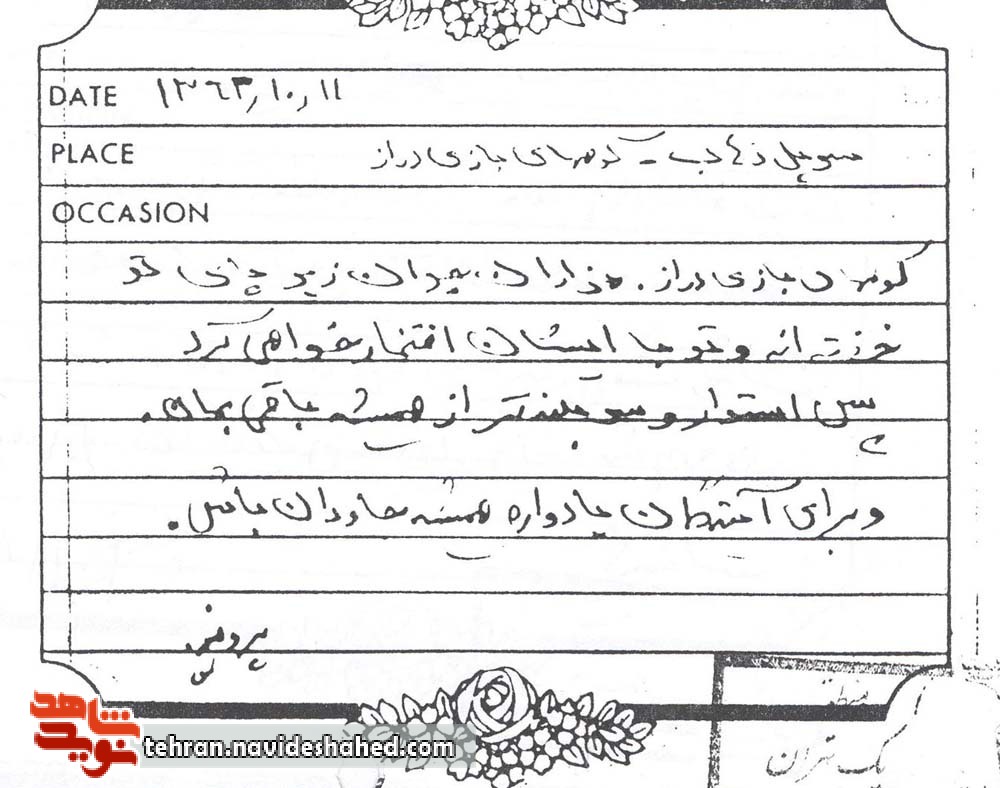 DATE ۱۳۶۳٫۱۰٫۱۱
PLACE سرپل ذهاب - کوههای بازی دراز
OCCASION
کوههای بازی دراز. هزاران زیر پای تو
و تو با ایشان افتخار خواهی کرد
پس استوار و سربلندتر از همیشه باقی بمان.
و برای آیندگان یادواره همیشه جاودان باش.
پرویز
شاهد
نوید
tehran.navideshahed.com
منطقه
یک تهران